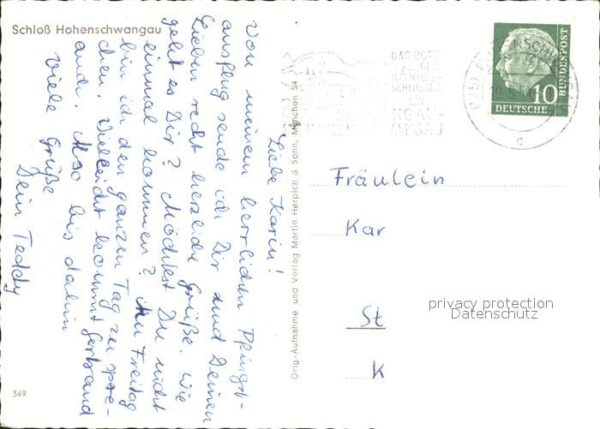 Schloß Hohenschwangau
Liebe Karin!
Von meinem herrlichen Pfingst-
ausflug sende ich Dir und Deinen
Lieben recht herzliche Grüße. Wie
geht es Dir? Möchtest Du nicht
einmal kommen? Am Freitag
bin ich den ganzen Tag zu spre-
chen. Vielleicht kommt Gertraud
auch. Also bis dahin
viele Grüße
Dein Teddy
349
Orig.-Aufnahme und Verlag Martin Herpich & Sohn, München
DAS DORF
KÖNIGS
SCHLÖSSER
10
DEUTSCHE
BUNDESPOST
c
Fräulein
Kar
St
K
privacy protection
Datenschutz